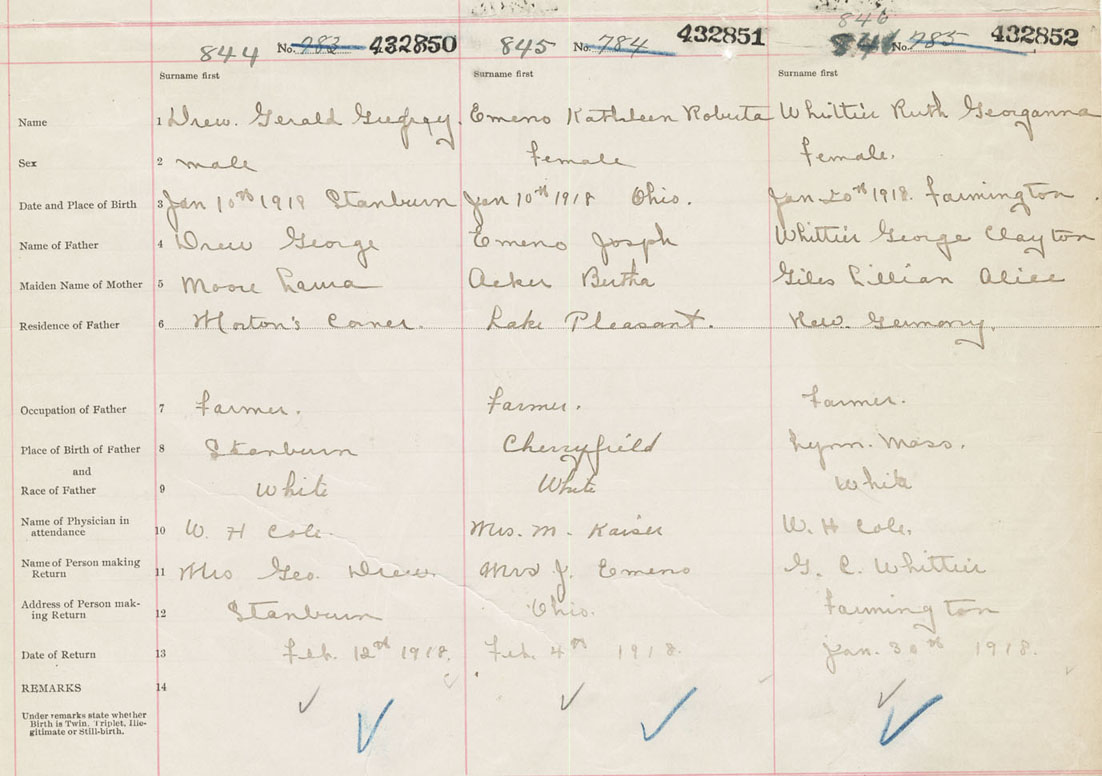 844 No. 783 432850 845 No. 784 432851 846 841 No. 785 432852
Surname first Surname first Surname first
Name 1 Drew. Gerald Emeno Kathleen Roberta Whittier Ruth Georganna
Sex 2 male Female Female.
Date and Place of Birth 3 Jan 10th 1918 Stanburn Jan 10th 1918 Ohio. Jan 20th 1918. Farmington.
Name of Father 4 Drew George Emeno Josph Whittier George Clayton
Maiden Name of Mother 5 Moore Laura Acker Bertha Giles Lillian Alice
Residence of Father 6 Morton's Corner. Lake Pleasant. New Germany.
Occupation of Father 7 Farmer. Farmer. Farmer.
Place of Birth of Father 8 Stanburn Cherryfield Lynn. Mass.
and
Race of Father 9 White White White
Name of Physician in
attendance 10 W. H Cole. Mrs. M. Kaiser W. H Cole.
Name of Person making
Return 11 Mrs Geo. Drew. Mrs J. Emeno G. C. Whittier
Address of Person mak-
ing Return 12 Stanburn Ohio. Farmington
Date of Return 13 Feb. 12th 1918. Feb. 4th 1918. Jan. 30th 1918.
REMARKS 14
Under remarks state whether
Birth is Twin, Triplet, Ille-
gitimate or Still-birth.